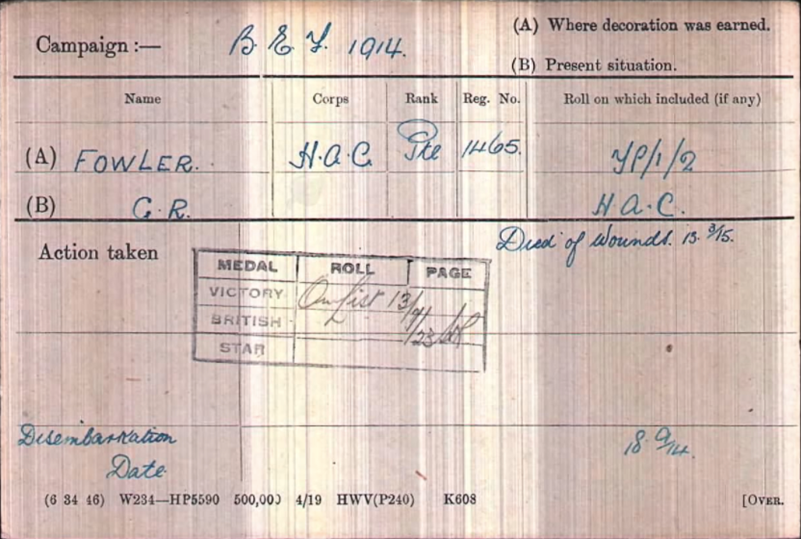 Campaign :— B.E.F. 1914. (A) Where decoration was earned.
(B) Present situation.
Name Corps Rank Reg. No. Roll on which included (if any)
(A) FOWLER. H.A.C. Pte 1465. YP/1/2
(B) C.R. H.A.C.
Action taken Died of Wounds. 13.3/15.
MEDAL ROLL PAGE
VICTORY On List 13/9/23
BRITISH
STAR
Disembarkation
Date 18.9/14.
(6 34 46) W234—HP5590 500,000 4/19 HWV(P240) K608 [OVER.